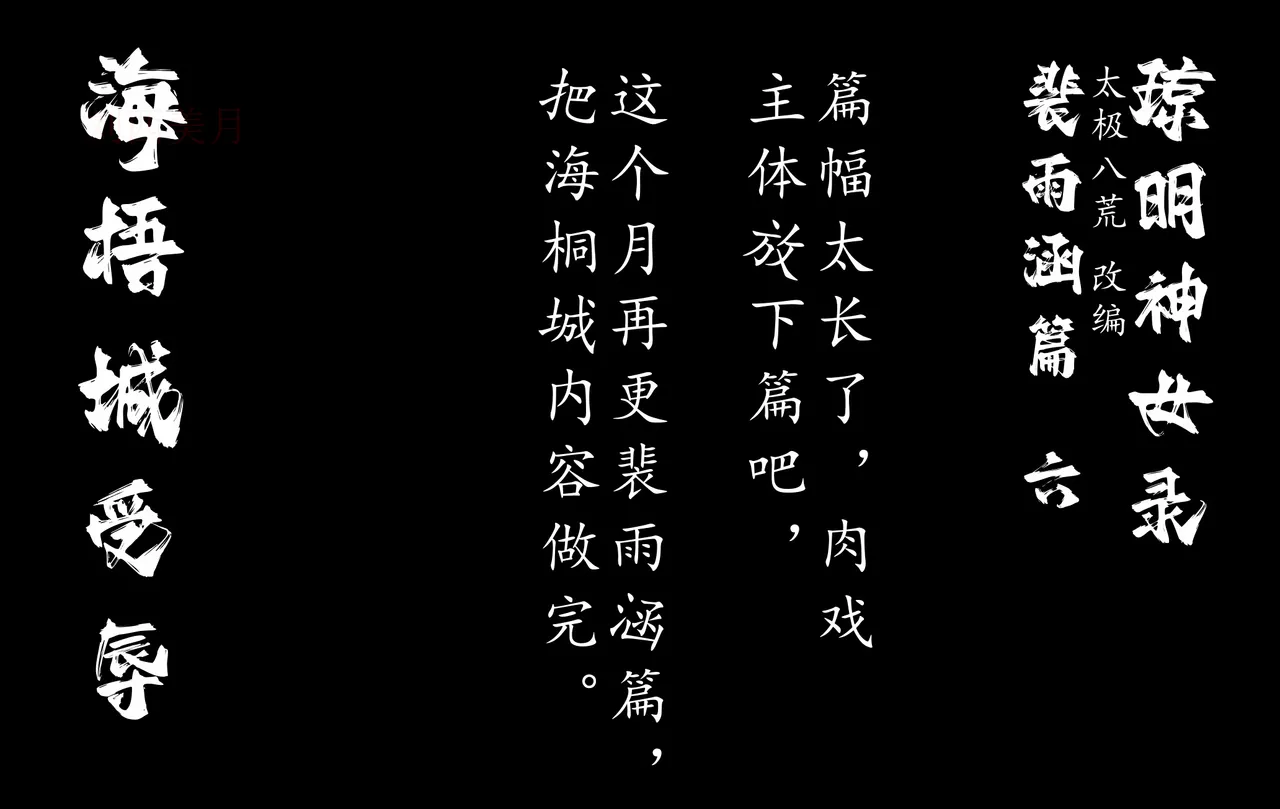 琼明神女录
太极八荒 改编
裴雨涵篇 六
篇幅太长了，肉戏
主体放下篇吧，
这个月再更裴雨涵篇，
把海桐城内容做完。
海梧城受辱